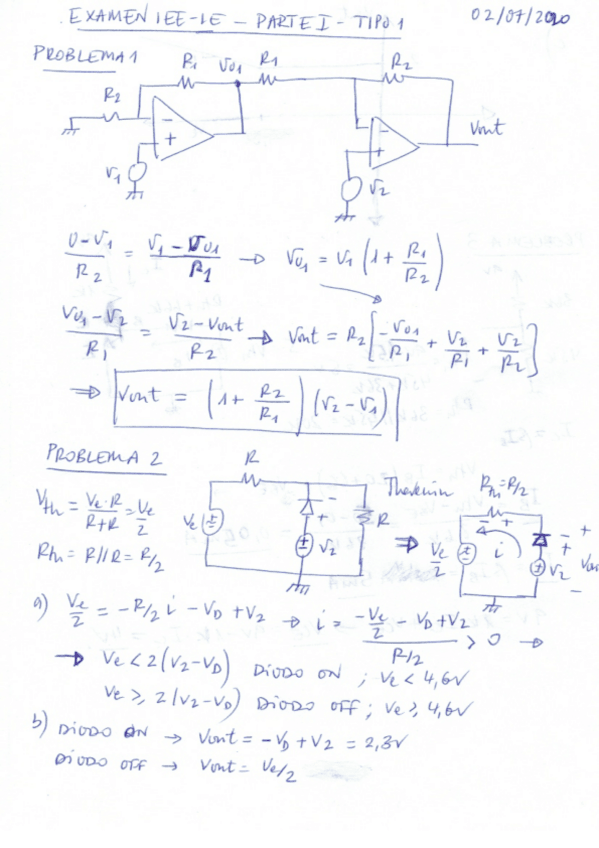 EXAMEN IEE-LE - PARTE I - TIPO 1 02/07/2020
PROBLEMA 1
R1 Vo1 R1 R2
R2
- + - + Vout
V1 V2
(0-V1)/R2 = (V1-Vo1)/R1 → Vo1 = V1 (1 + R1/R2)
(Vo1-V2)/R1 = (V2-Vout)/R2 → Vout = R2 [-Vo1/R1 + V2/R1 + V2/R2]
⇒ Vout = (1 + R2/R1) (V2-V1)
PROBLEMA 2
Vth = Ve·R/(R+R) = Ve/2
Rth = R//R = R/2
R
Ve - + V2 R
Thevenin
⇒
Rth=R/2
Ve/2 - + i - + V2 + Vout -
a) Ve/2 = -R/2 i - VD + V2 → i = (-Ve/2 - VD + V2)/(R/2) > 0 →
→ Ve < 2(V2-VD) DIODO ON ; Ve < 4,6V
Ve ≥ 2(V2-VD) DIODO OFF ; Ve ≥ 4,6V
b) DIODO ON → Vout = -VD + V2 = 2,3V
DIODO OFF → Vout = Ve/2